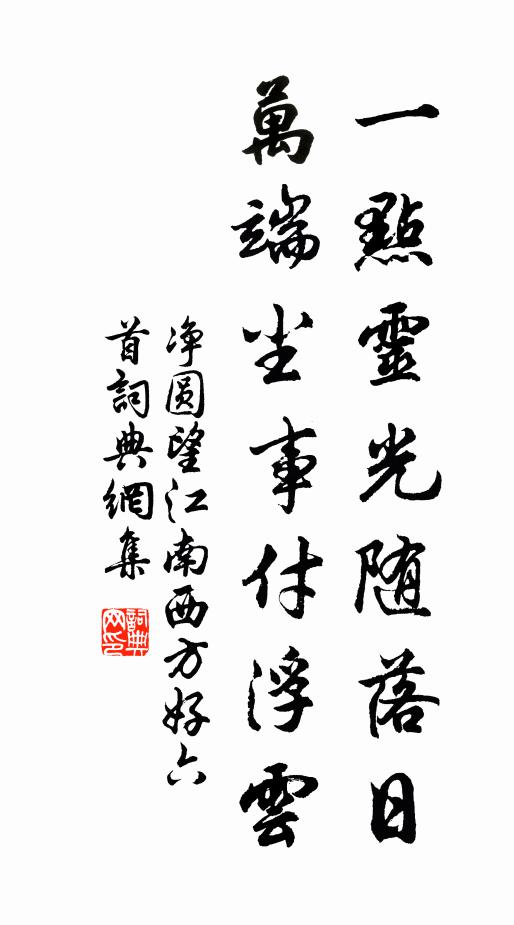 一點靈光随落日
萬端尘事付浮雲
净圆望江南西方好六
首詞典網集
詞典
网印